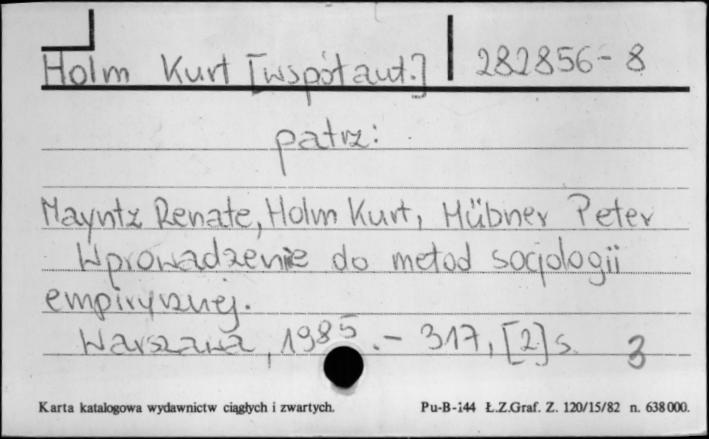 Holm Kurt [współaut.] 282856-8
patrz:
Mayntz Renate, Holm Kurt, Hübner Peter
Wprowadzenie do metod socjologii
empirycznej.
Warszawa, 1985.- 317, [2] s. 3
Karta katalogowa wydawnictw ciągłych i zwartych. Pu-B-144 Ł.Z.Graf. Z. 120/15/82 n. 638000.